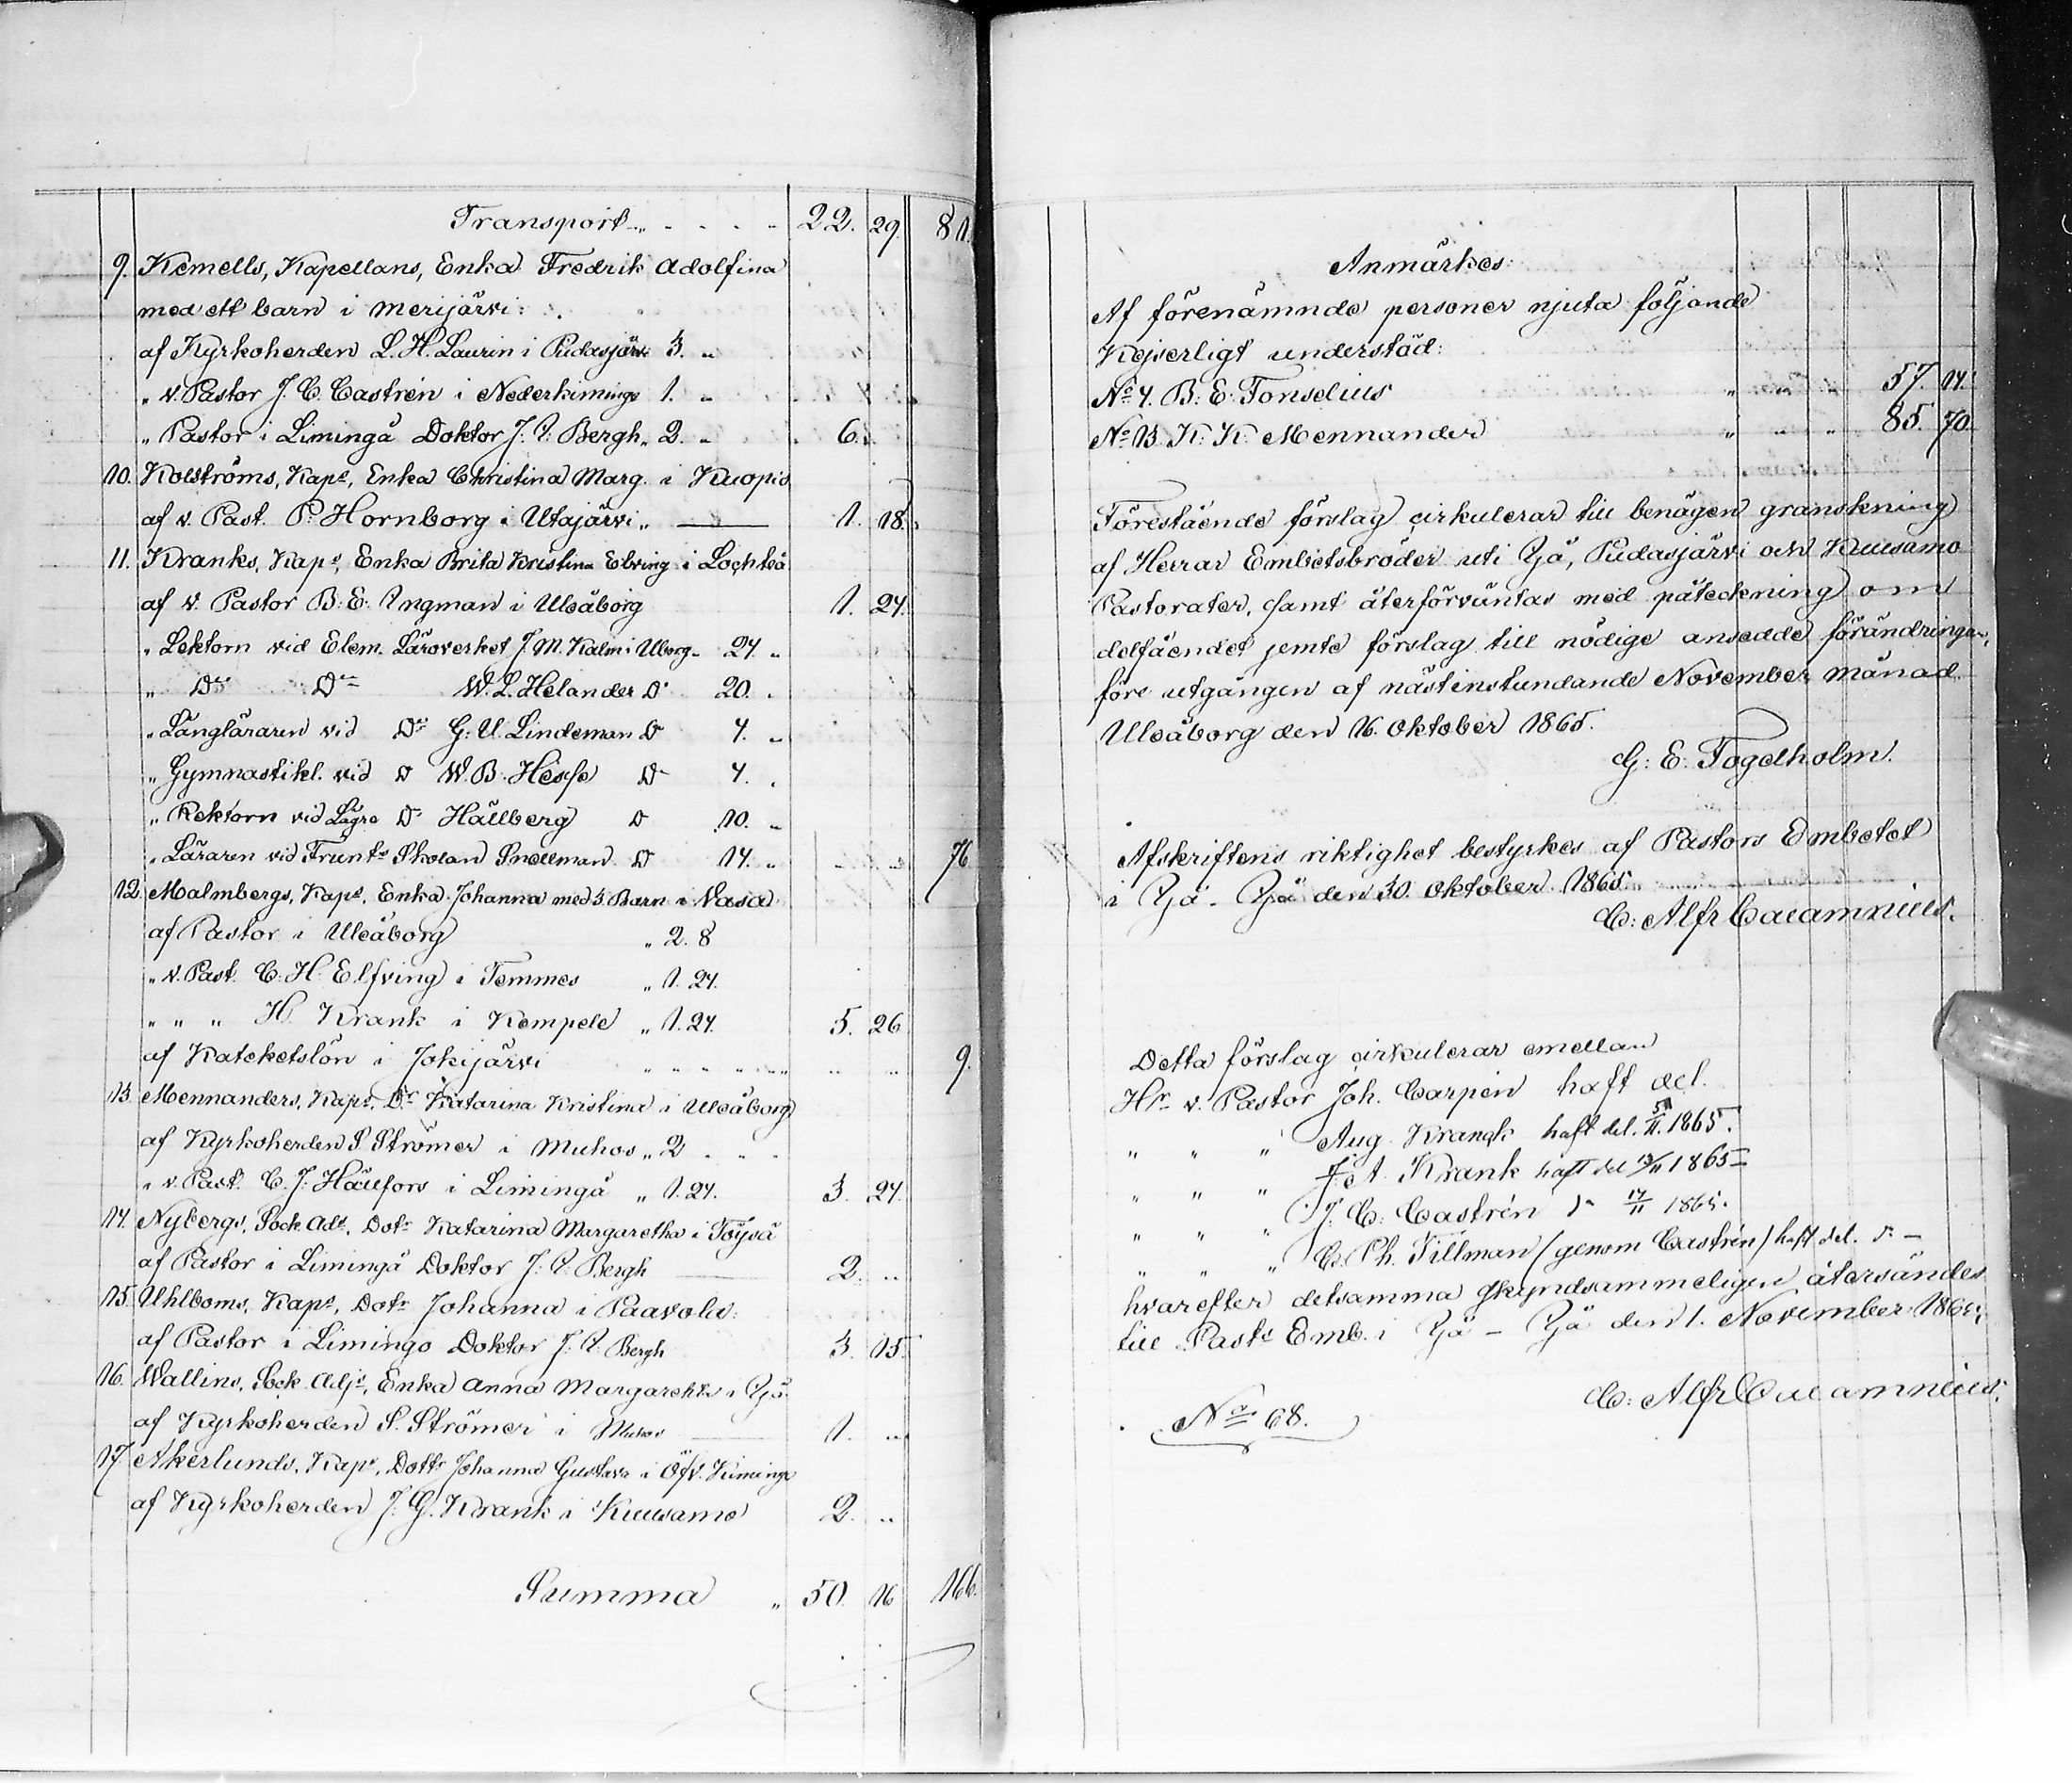 Transport „ . . . . 22. 29. 81.
9. Kemells, Kapellans, Enka Fredrik Adolfina
med ett barn i Merijärvi:
af Kyrkoherden L. H. Laurin i Pudasjärvi 3. „
„ v. Pastor J. C. Castrén i Nederkiminge 1. „
„ Pastor i Limingå Doktor J. I. Bergh „ 2. „ 6.
10. Kolströms, Kaps, Enka Christina Marg. i Kuopio
af v. Past. P. Hornborg i Utajärvi „ 1. 18.
11. Kranks, Kaps, Enka Brita Kristina Elving i Lochteå
af v. Pastor B. E. Ingman i Uleåborg 1. 24.
„ Lektorn vid Elem. Läroverket J. M. Kalm i Ulborg „ 24. „
„ Do Do W. L. Helander Do 20. „
„ Sångläraren vid Do G. U. Lindeman Do 4. „
„ Gymnastikl. vid Do W. B. Hesse Do 4. „
„ Rektorn vid Lägre Do Hällberg Do 10. „
„ Läraren vid Frunts Skolan Snellman Do 14. „ 76
12. Malmbergs, Kaps, Enka Johanna med 3 Barn i Vasa
af Pastor i Uleåborg „ 2. 8
„ v. Past. C. H. Elfving i Temmes „ 1. 24.
„ „ „ H. Krank i Kempele „ 1. 24. 5. 26
af Kateketslön i Jokijärvi 9.
13. Mennanders, Kaps, Dr Katarina Kristina i Uleåborg
af Kyrkoherden S. Strömer i Muhos „ 2 „
„ v. Past. C. J. Häufors i Limingå „ 1. 24. 3. 24.
14. Nybergs, Sock. Ads, Dotr Katarina Margaretha i Töysä
af Pastor i Limingå Doktor J. I. Bergh 2. „
15. Uhlboms, Kaps, Dotr Johanna i Paavola:
af Pastor i Limingo Doktor J. I. Bergh 3. 15.
16. Wallins, Sock. Adjs, Enka Anna Margaretha i Ijå
af Kyrkoherden S. Strömer i Muhos 1. „
17. Åkerlunds, Kaps, Dottr Johanna Gustava i Öfv. Kiminge
af Kyrkoherden J. G. Krank i Kuusamo 2. „
Summa „ 50. 16 166.
Anmärkes:
Af förenämnde personer njuta följande
Kejserligt understöd:
No 4. B. E. Fonselius „ 57. 14.
No 13. K. K. Mennander „ 85. 70.
Förestående förslag cirkulerar till benägen granskning
af Herrar Embetsbröder uti Ijå, Pudasjärvi och Kuusamo
Pastorater, samt återförväntas med påteckning om
delfåendet jemte förslag till nödige ansedde förändringar,
före utgången af nästinstundande November månad.
Uleåborg den 16. Oktober 1865.
G: E: Fogelholm.
Afskriftens riktighet bestyrkes af Pastors Embetet
i Ijå. Ijå den 30. Oktober 1865.
C: Alfr Calamnius.
Detta förslag cirkulerar emellan
Hr v. Pastor Joh. Carpén haft del.
„ „ „ Aug. Kranck haft del. 5/11 1865.
„ „ „ J. A. Krank haft del 13/11 1865
„ „ „ J. C. Castrén 14/11 1865.
„ „ „ C. Ph. Tillman (genom Castrén) haft del.
hvarefter detsamma skyndsammeligen återsändes
till Pasts Emb. i Ijå – Ijå den 1. November 1865.
C: Alfr Calamnius.
No 68.